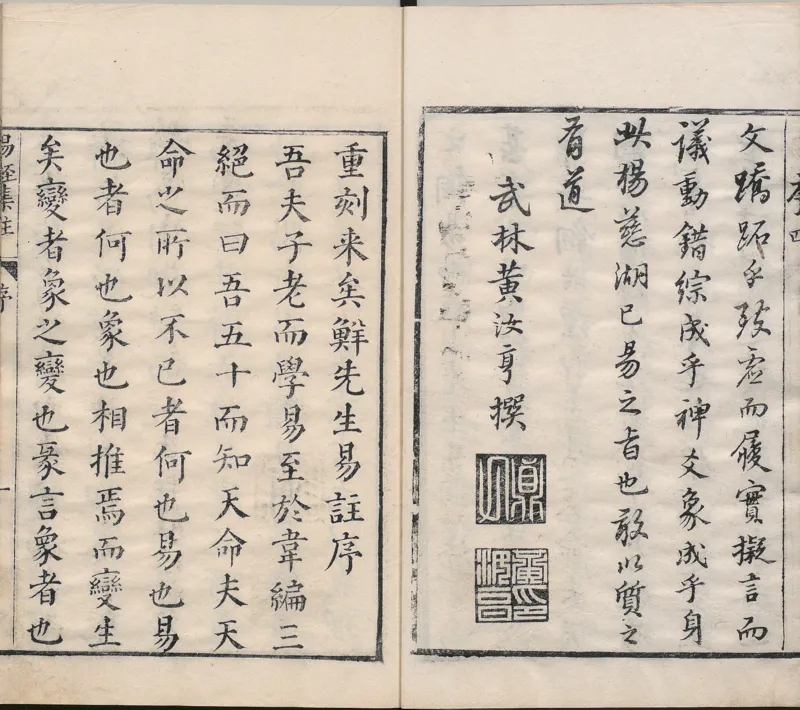 序四
文蹻跖乎致虛而履實擬言而
議動錯綜成乎神爻象成乎身
此楊慈湖已易之旨也敢以質之
有道
武林黃汝亨撰
重刻来矣鮮先生易註序
吾夫子老而學易至於韋編三
絕而曰吾五十而知天命夫天
命之所以不已者何也易也易
也者何也象也相推焉而變生
矣變者象之變也彖言象者也
易經集註
序
一